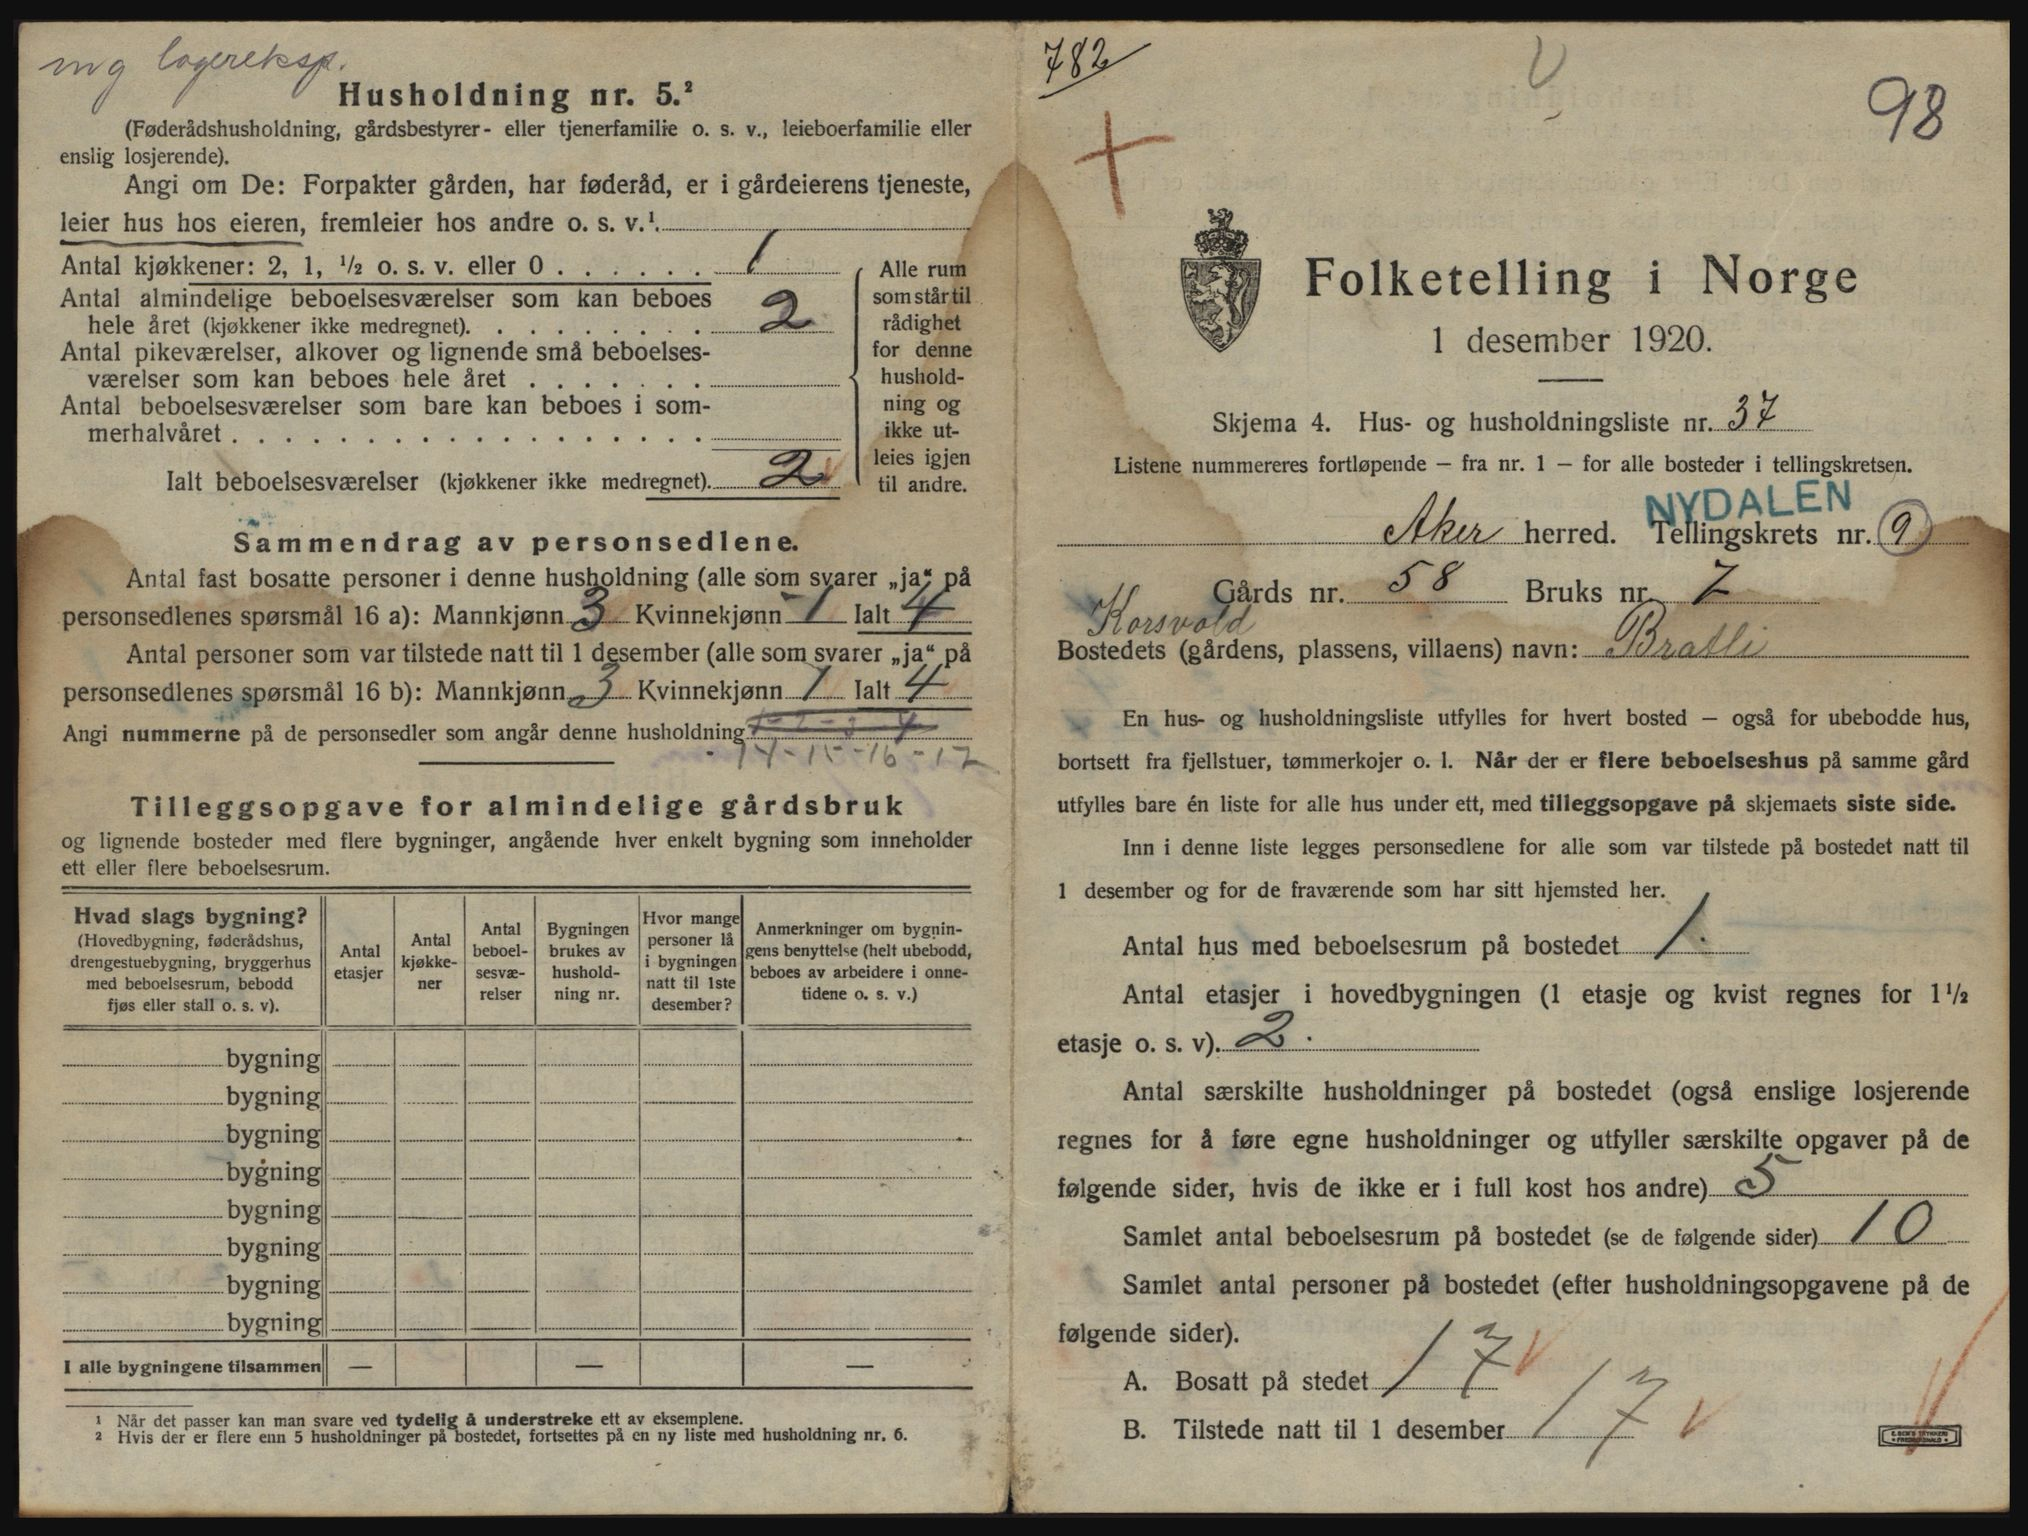 mg lagereksp.
Husholdning nr. 5.²
(Føderådshusholdning, gårdsbestyrer- eller tjenerfamilie o. s. v., leieboerfamilie eller
enslig losjerende).
Angi om De: Forpakter gården, har føderåd, er i gårdeierens tjeneste,
leier hus hos eieren, fremleier hos andre o. s. v.¹.
Antal kjøkkener: 2, 1, ½ o. s. v. eller 0 . . . . . . 1
Antal almindelige beboelsesværelser som kan beboes
hele året (kjøkkener ikke medregnet). . . . . . . . . 2
Antal pikeværelser, alkover og lignende små beboelses-
værelser som kan beboes hele året . . . . . . .
Antal beboelsesværelser som bare kan beboes i som-
merhalvåret . . . . . . . . . . . . . . . . . .
Ialt beboelsesværelser (kjøkkener ikke medregnet). 2
Alle rum
som står til
rådighet
for denne
hushold-
ning og
ikke ut-
leies igjen
til andre.
Sammendrag av personsedlene.
Antal fast bosatte personer i denne husholdning (alle som svarer „ja“ på
personsedlenes spørsmål 16 a): Mannkjønn 3 Kvinnekjønn 1 Ialt 4
Antal personer som var tilstede natt til 1 desember (alle som svarer „ja“ på
personsedlenes spørsmål 16 b): Mannkjønn 3 Kvinnekjønn 1 Ialt 4
Angi nummerne på de personsedler som angår denne husholdning 1-2-3-4
- 14-15-16-17
Tilleggsopgave for almindelige gårdsbruk
og lignende bosteder med flere bygninger, angående hver enkelt bygning som inneholder
ett eller flere beboelsesrum.
Hvad slags bygning?
(Hovedbygning, føderådshus,
drengestuebygning, bryggerhus
med beboelsesrum, bebodd
fjøs eller stall o. s. v).
Antal
etasjer
Antal
kjøkke-
ner
Antal
beboel-
sesvæ-
relser
Bygningen
brukes av
hushold-
ning nr.
Hvor mange
personer lå
i bygningen
natt til 1ste
desember?
Anmerkninger om bygnin-
gens benyttelse (helt ubebodd,
beboes av arbeidere i onne-
tidene o. s. v.)
bygning
bygning
bygning
bygning
bygning
bygning
bygning
bygning
I alle bygningene tilsammen — — —
¹ Når det passer kan man svare ved tydelig å understreke ett av eksemplene.
² Hvis der er flere enn 5 husholdninger på bostedet, fortsettes på en ny liste med husholdning nr. 6.
782
98
Folketelling i Norge
1 desember 1920.
Skjema 4. Hus- og husholdningsliste nr. 37
Listene nummereres fortløpende – fra nr. 1 – for alle bosteder i tellingskretsen.
NYDALEN
Aker herred. Tellingskrets nr. 9
Gårds nr. 58 Bruks nr. 7
Korsvold
Bostedets (gårdens, plassens, villaens) navn: Bratli
En hus- og husholdningsliste utfylles for hvert bosted – også for ubebodde hus,
bortsett fra fjellstuer, tømmerkojer o. l. Når der er flere beboelseshus på samme gård
utfylles bare én liste for alle hus under ett, med tilleggsopgave på skjemaets siste side.
Inn i denne liste legges personsedlene for alle som var tilstede på bostedet natt til
1 desember og for de fraværende som har sitt hjemsted her.
Antal hus med beboelsesrum på bostedet 1.
Antal etasjer i hovedbygningen (1 etasje og kvist regnes for 1½
etasje o. s. v). 2.
Antal særskilte husholdninger på bostedet (også enslige losjerende
regnes for å føre egne husholdninger og utfyller særskilte opgaver på de
følgende sider, hvis de ikke er i full kost hos andre) 5
Samlet antal beboelsesrum på bostedet (se de følgende sider) 10
Samlet antal personer på bostedet (efter husholdningsopgavene på de
følgende sider).
A. Bosatt på stedet 17
B. Tilstede natt til 1 desember 17